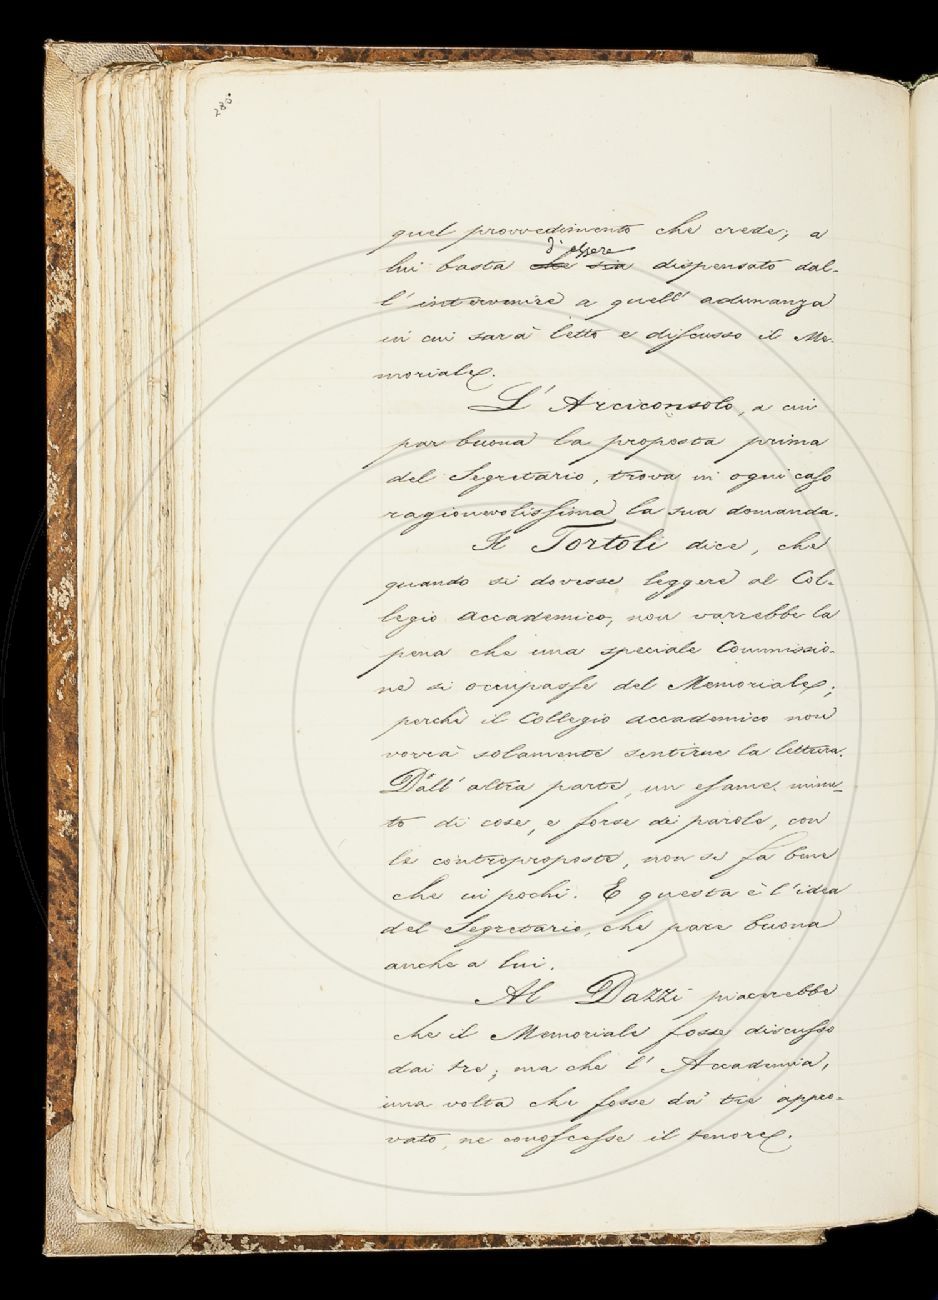 280
quel provvedimento che crede; a
d'essere
lui basta che sia dispensato dal-
l'intervenire a quell'adunanza
in cui sarà letto e discusso il Me-
moriale.
L'Arciconsolo, a cui
par buona la proposta prima
del Segretario, trova in ogni caso
ragionevolissima la sua domanda.
Il Tortoli dice, che
quando si dovesse leggere al Col-
legio accademico, non varrebbe la
pena che una speciale Commissio-
ne si occupasse del Memoriale;
perchè il Collegio accademico non
vorrà solamente sentirne la lettura.
Dall'altra parte, un esame minu-
to di cose, e forse di parole, con
le controproposte, non si fa bene
che in pochi. E questa è l'idea
del Segretario, che pare buona
anche a lui.
Al Dazzi piacerebbe
che il Memoriale fosse discusso
dai tre; ma che l'Accademia,
una volta che fosse da' tre appro-
vato, ne conoscesse il tenore.